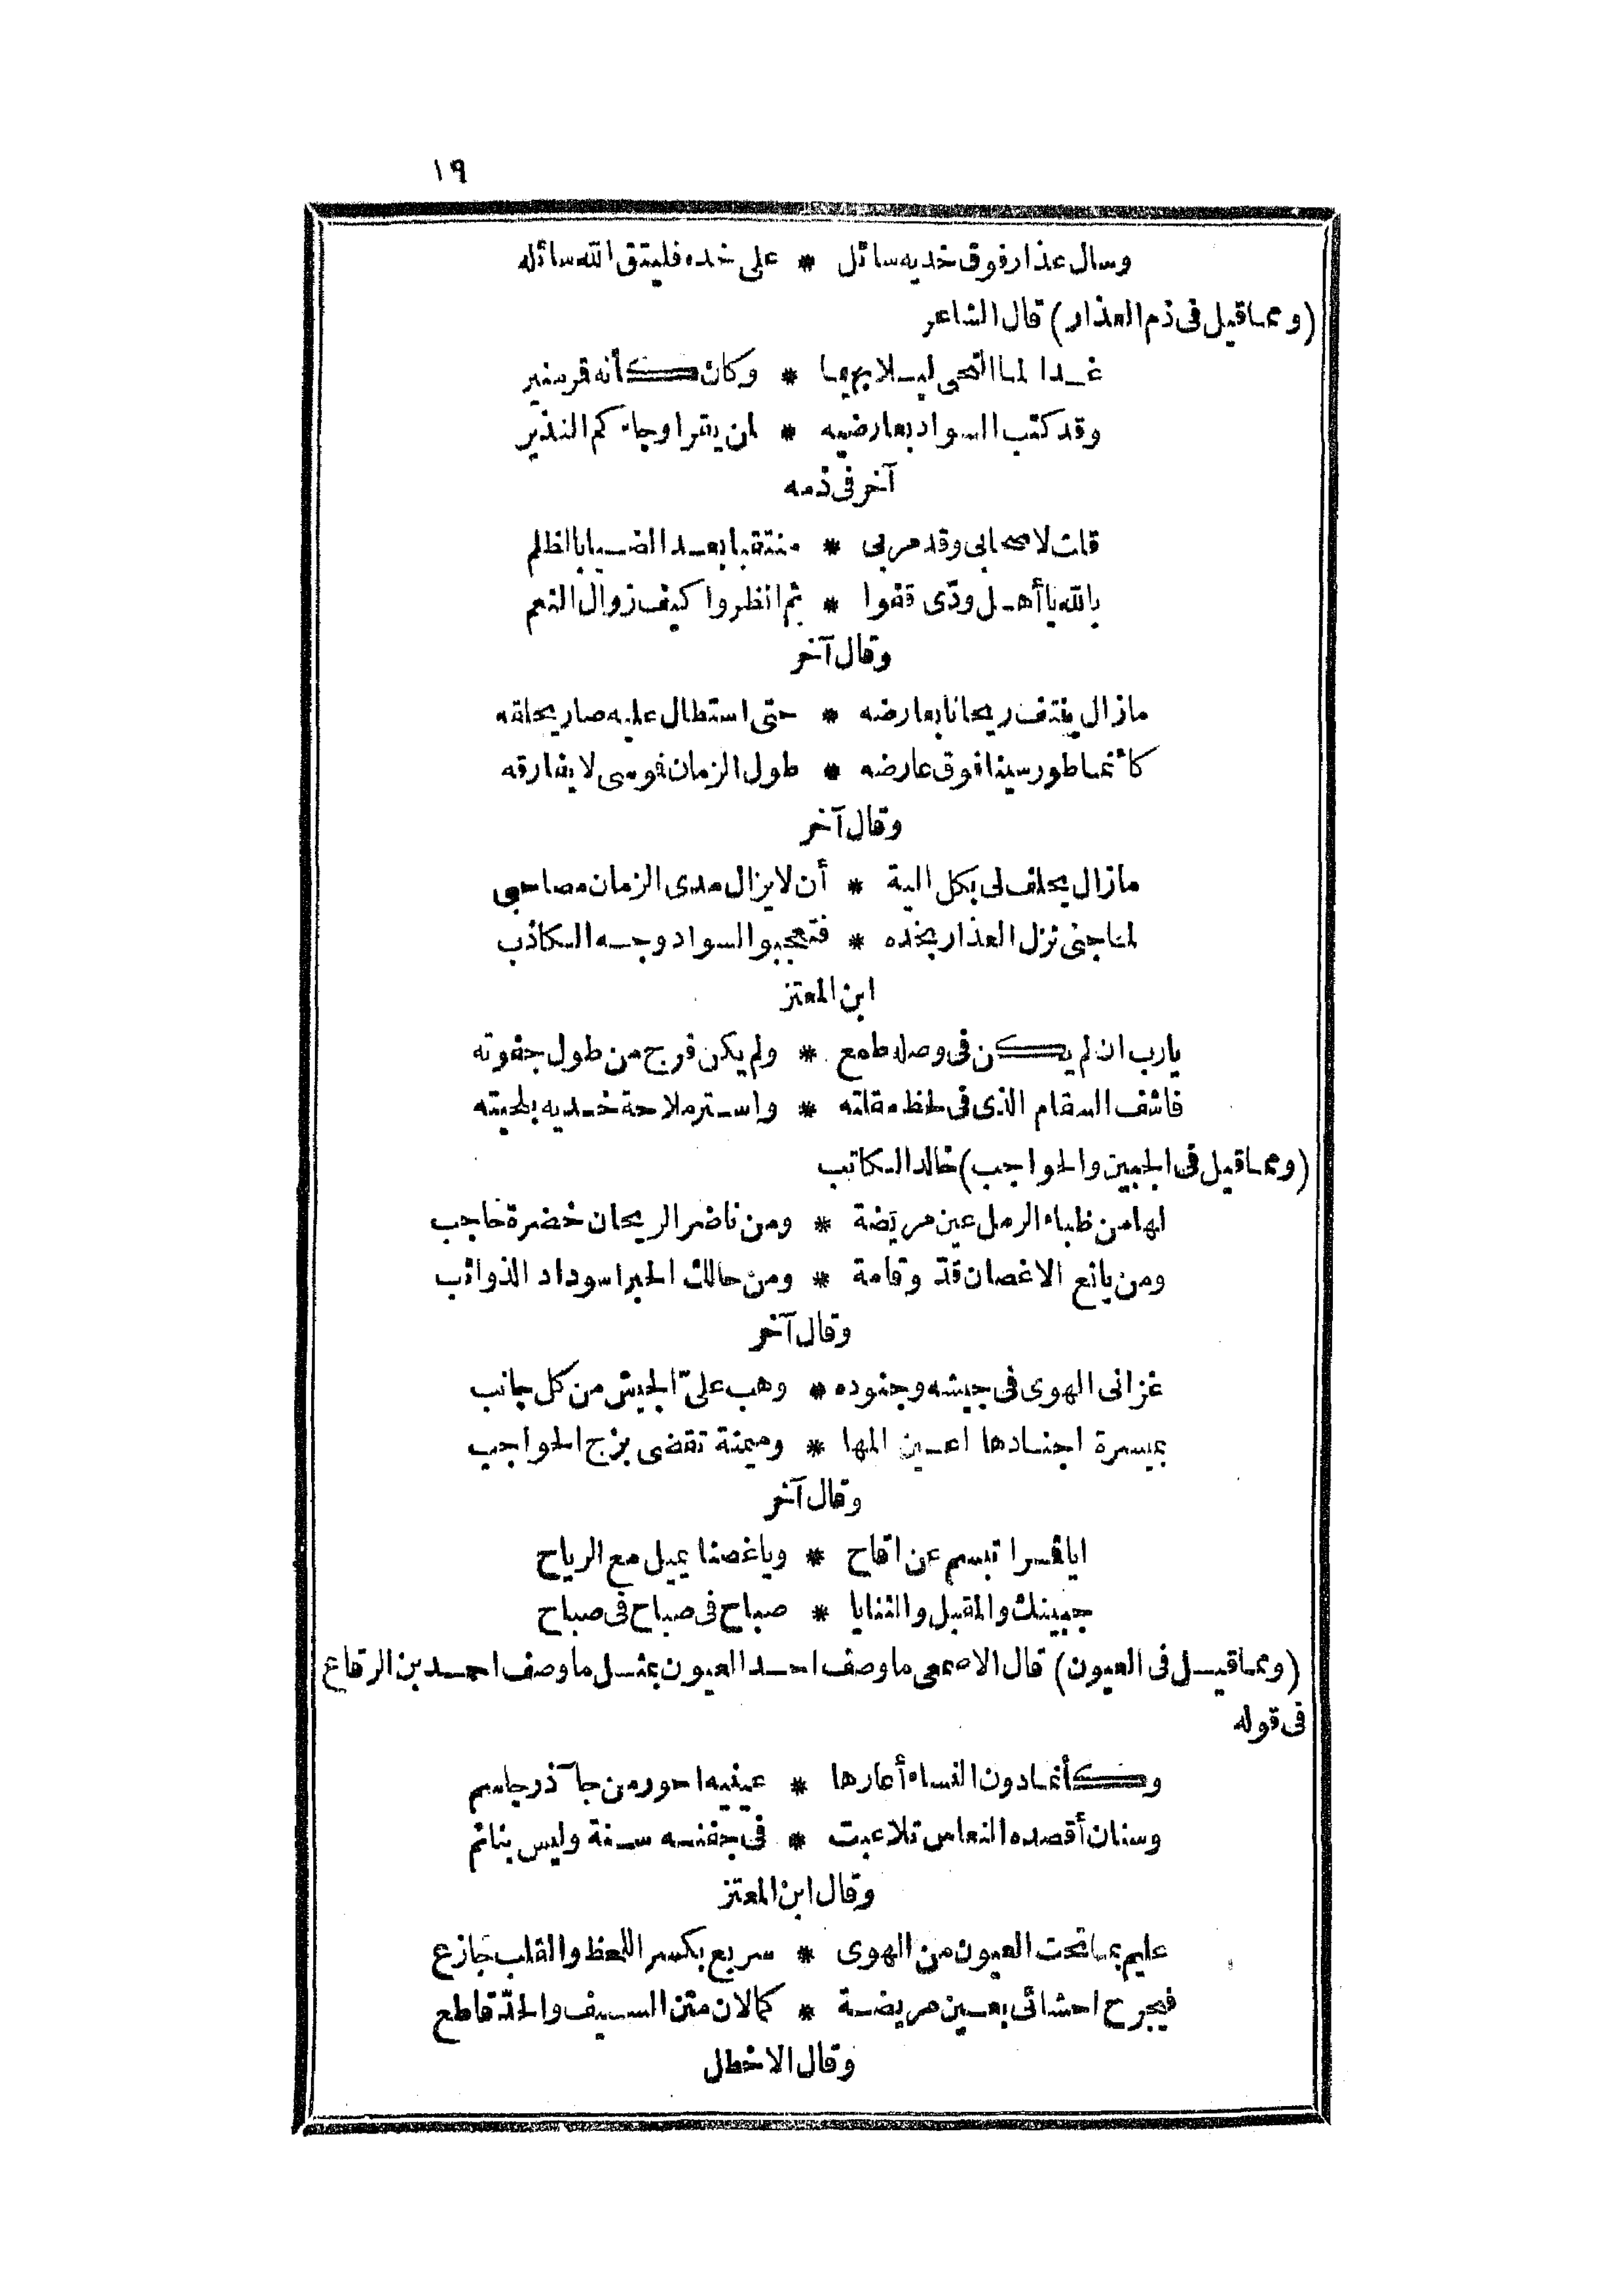 ١٩
وسال عذار فوق خديه سائل * على خده فليتق الله سائله
(ومما قيل فى ذم العذار) قال الشاعر
غدا لما التحى ليلا بهيما * وكان كأنه قمر منير
وقد كتب السواد بعارضيه * لمن يقرا وجاءكم النذير
آخر فى ذمه
قلت لاصحابى وقد مر بى * منتقبا بعد الضيا بالظلم
بالله يا أهل ودّى قفوا * ثم انظروا كيف زوال النعم
وقال آخر
مازال ينتف ريحانا بعارضه * حتى استطال عليه صار يحلقه
كأنما طور سينا فوق عارضه * طول الزمان فموسى لا يفارقه
وقال آخر
مازال يحلف لى بكل الية * أن لا يزال مدى الزمان مصاحبى
لما جفى نزل العذار بخده * فتعجبوا لسواد وجه الكاذب
ابن المعتز
يارب ان لم يكن فى وصله طمع * ولم يكن فرج من طول جفوته
فاشف السقام الذى فى لحظ مقلته * واستر ملاحة خديه بلحيته
(ومما قيل فى الجبين والحواجب) خالد الكاتب
لها من ظباء الرمل عين مريضة * ومن ناضر الريحان خضرة حاجب
ومن يانع الاغصان قدّ وقامة * ومن حالك الحبر اسوداد الذوائب
وقال آخر
غزانى الهوى فى جيشه وجنوده * وهب علىّ الجيش من كل جانب
بميسرة اجنادها اعين المها * وميمنة تقضى بزج الحواجب
وقال آخر
ايا قمرا تبسم عن اقاح * ويا غصنا يميل مع الرياح
جبينك والمقبل والثنايا * صباح فى صباح فى صباح
(ومما قيل فى العيون) قال الاصمعى ما وصف احد العيون بمثل ما وصف احمد بن الرقاع
فى قوله
وكأنما دون النساء أعارها * عينيه احور من جآذر جاسم
وسنان أقصده النعاس تلاعبت * فى جفنه سنة وليس بنائم
وقال ابن المعتز
عليم بما تحت العيون من الهوى * سريع بكسر اللحظ والقلب جازع
فيجرح احشائى بعين مريضة * كما لان متن السيف والحدّ قاطع
وقال الاخطل